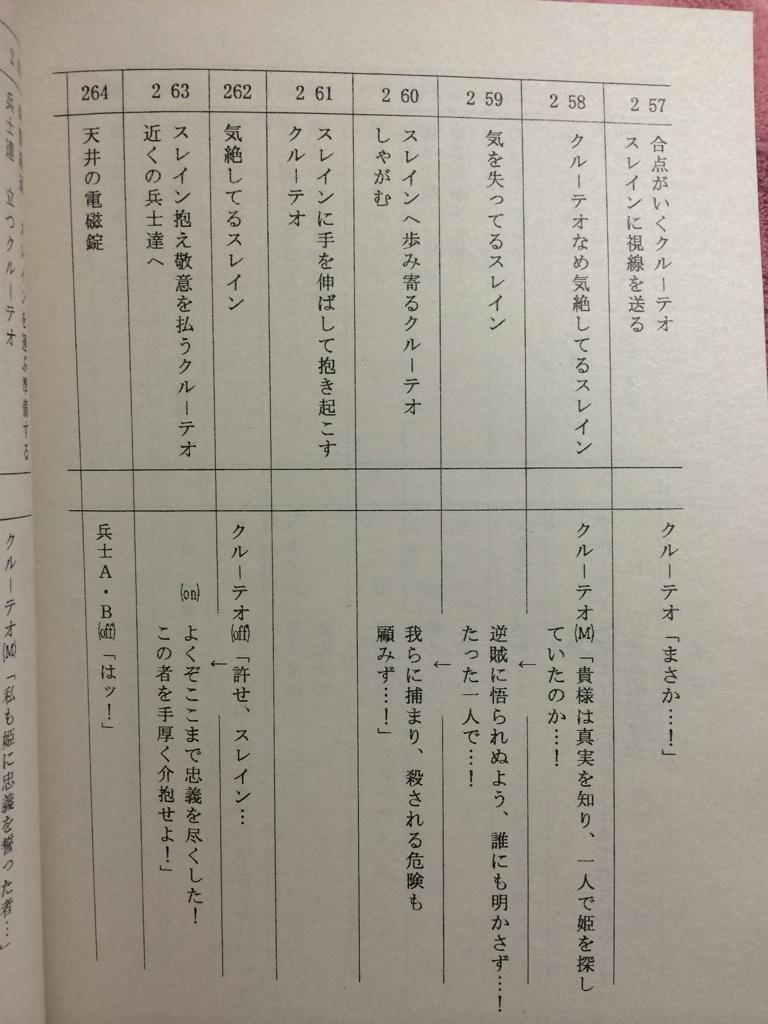 257
合点がいくクルーテオ
スレインに視線を送る
クルーテオ「まさか…！」
258
クルーテオなめ気絶してるスレイン
クルーテオ(M)「貴様は真実を知り、一人で姫を探し
ていたのか…！
↓
259
気を失ってるスレイン
逆賊に悟られぬよう、誰にも明かさず…！
たった一人で…！
↓
260
スレインへ歩み寄るクルーテオ
しゃがむ
我らに捕まり、殺される危険も
顧みず…！」
261
スレインに手を伸ばして抱き起こす
クルーテオ
262
気絶してるスレイン
クルーテオ(off)「許せ、スレイン…
↓
263
スレイン抱え敬意を払うクルーテオ
近くの兵士達へ
(on)　よくぞここまで忠義を尽くした！
この者を手厚く介抱せよ！」
264
天井の電磁錠
兵士A・B(off)「はッ！」
を運ぶ準備する
兵士達　立つクルーテオ
クルーテオ(M)「私も姫に忠義を誓った者…」